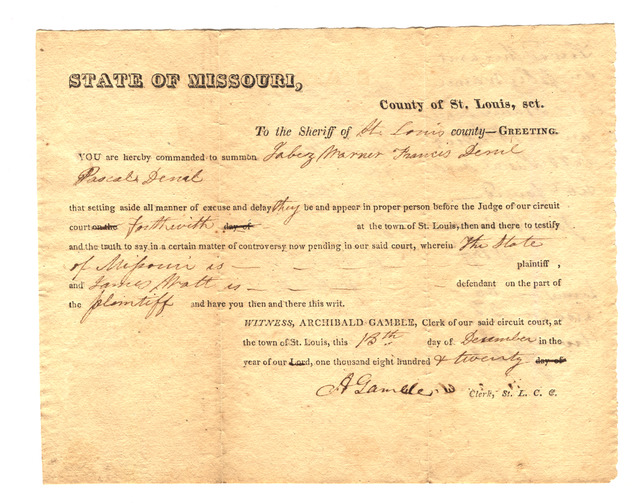 STATE OF MISSOURI,
County of St. Louis, sct.
To the Sheriff of St. Louis county—GREETING.
YOU are hereby commanded to summon Jabez Warner Francis Denil
Pascal Denal
that setting aside all manner of excuse and delay they be and appear in proper person before the Judge of our circuit
court on the forthwith day of at the town of St. Louis, then and there to testify
and the truth to say in a certain matter of controversy now pending in our said court, wherein The State
of Missouri is — plaintiff ,
and James Watt is — defendant on the part of
the plaintiff and have you then and there this writ.
WITNESS, ARCHIBALD GAMBLE, Clerk of our said circuit court, at
the town of St. Louis, this 13th day of December in the
year of our Lord, one thousand eight hundred & twenty day of
A Gamble Clerk, St. L. C. C.